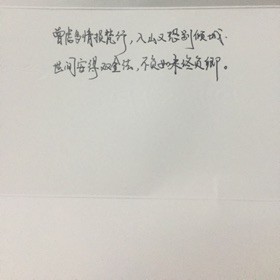 曾虑多情损梵行，入山又恐别倾城.
世间安得双全法，不负如来不负卿。